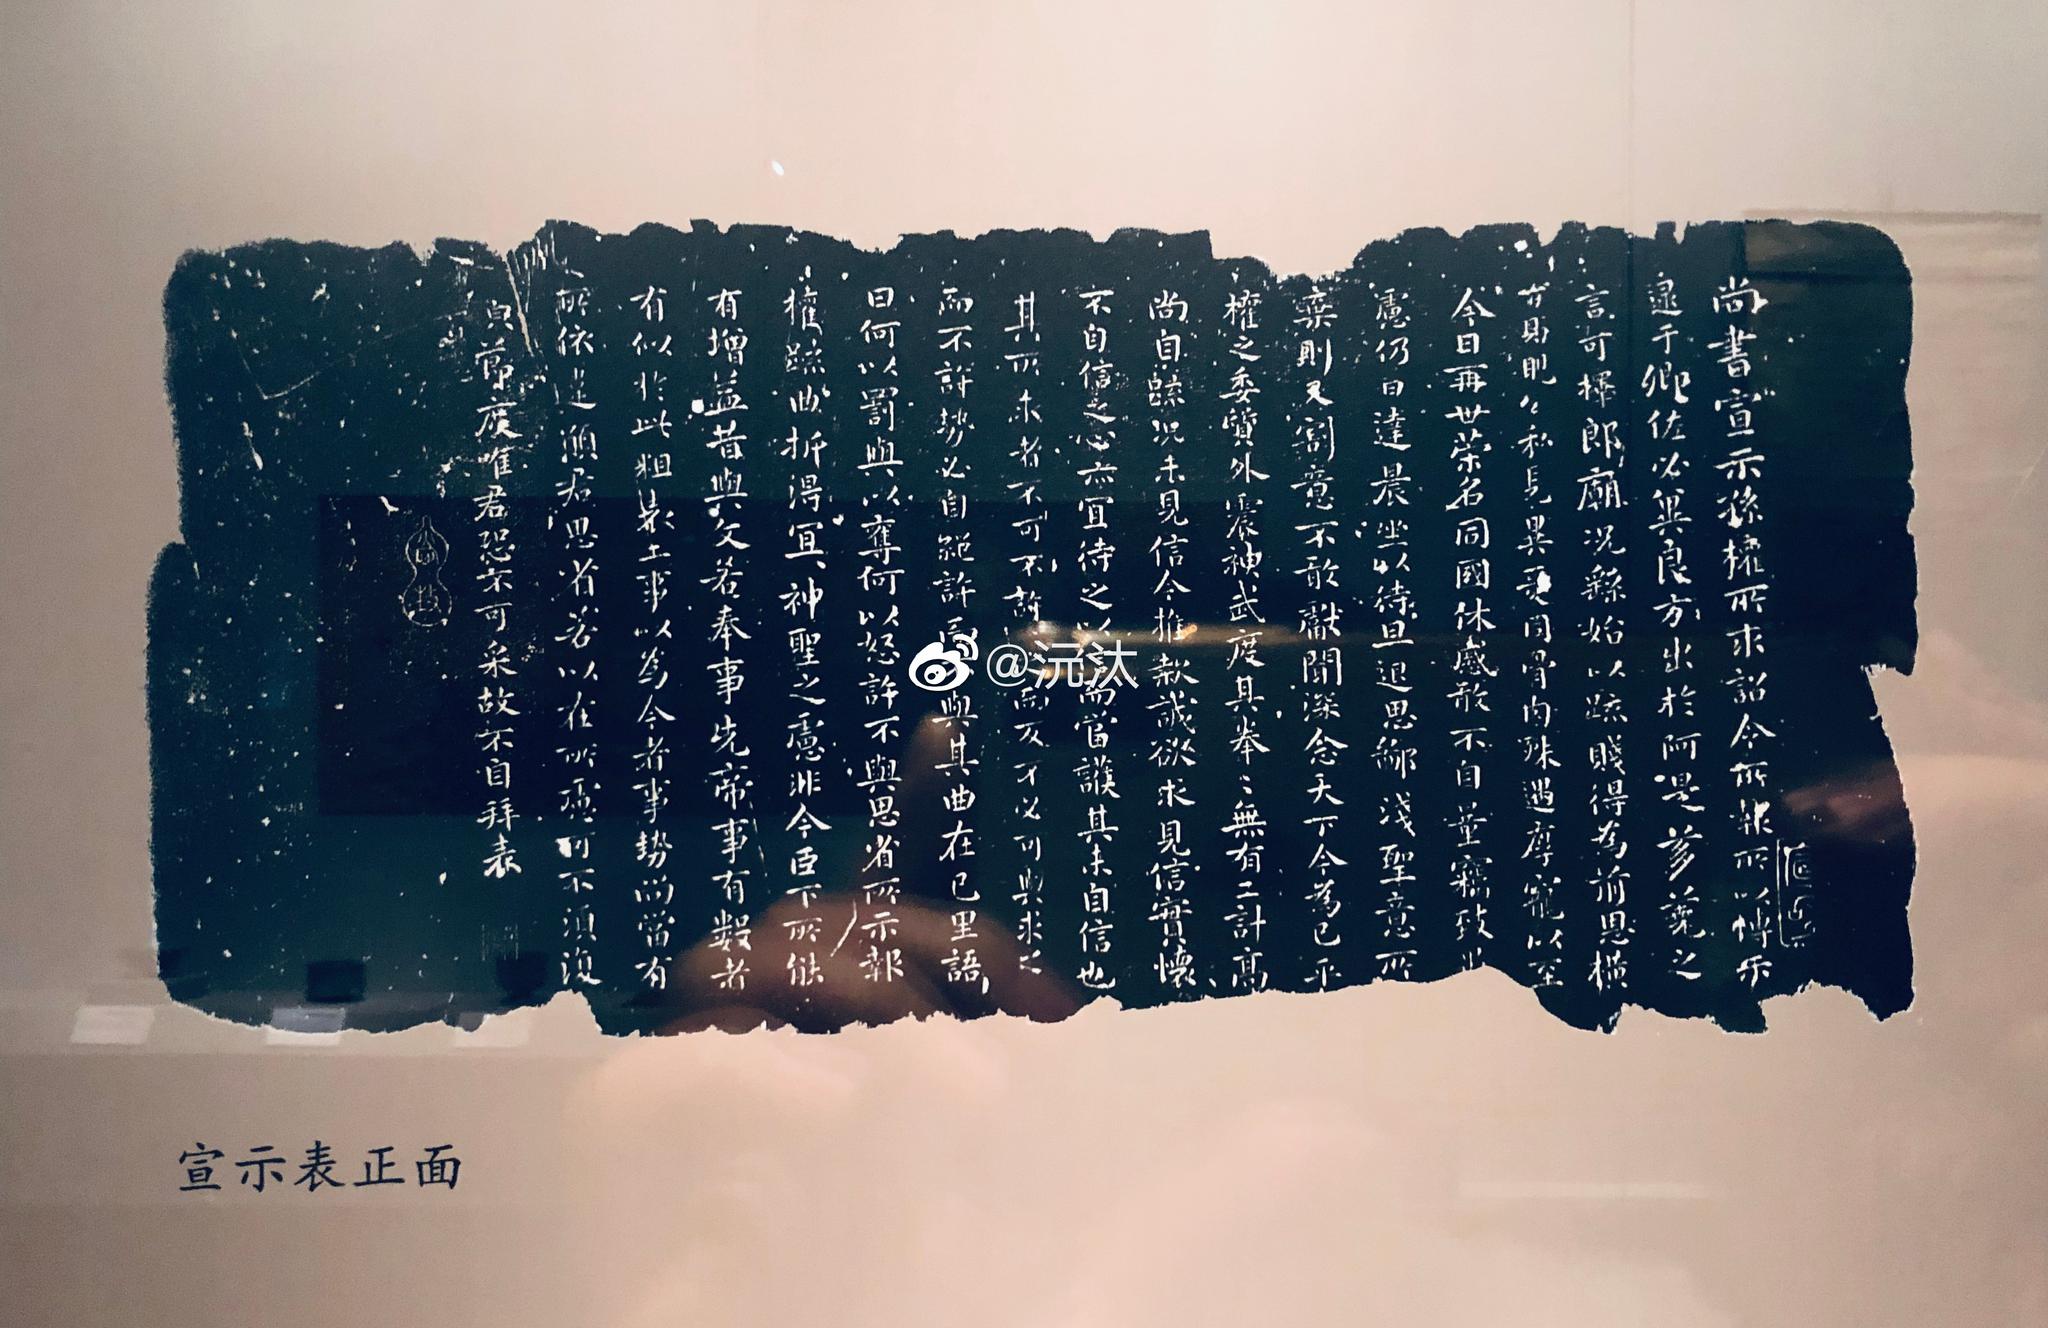 尚書宣示孫權所求詔令所報所以博示
逮于卿佐必冀良方出於阿是芻蕘之
言可擇郎廟況繇始以疏賤得為前恩橫
所盼公私見異愛同骨肉殊遇厚寵以至
今日再世榮名同國休慼敢不自量竊致
慮仍日達晨坐以待旦退思鄙淺聖意所
棄則又割意不敢獻聞深念天下今為已平
權之委質外震神武度其拳〻無有二計高
尚自疏況未見信今推款誠欲求見信實懷
不自信之心亦宜待之以信而當護其未自信也
其所求者不可不許而反不必可與求之
而不許勢必自絕許而不與其曲在己里語
曰何以罰與以奪何以怒許不與思省所示報
權疏曲折得宜神聖之慮非今臣下所能
有增益昔與文若奉事先帝事有數者
有似於此粗表二事以為今者事勢尚當有
所依違願君思省若以在所慮可不須復
貌節度唯君恐不可采故不自拜表
宣示表正面
@沅汰